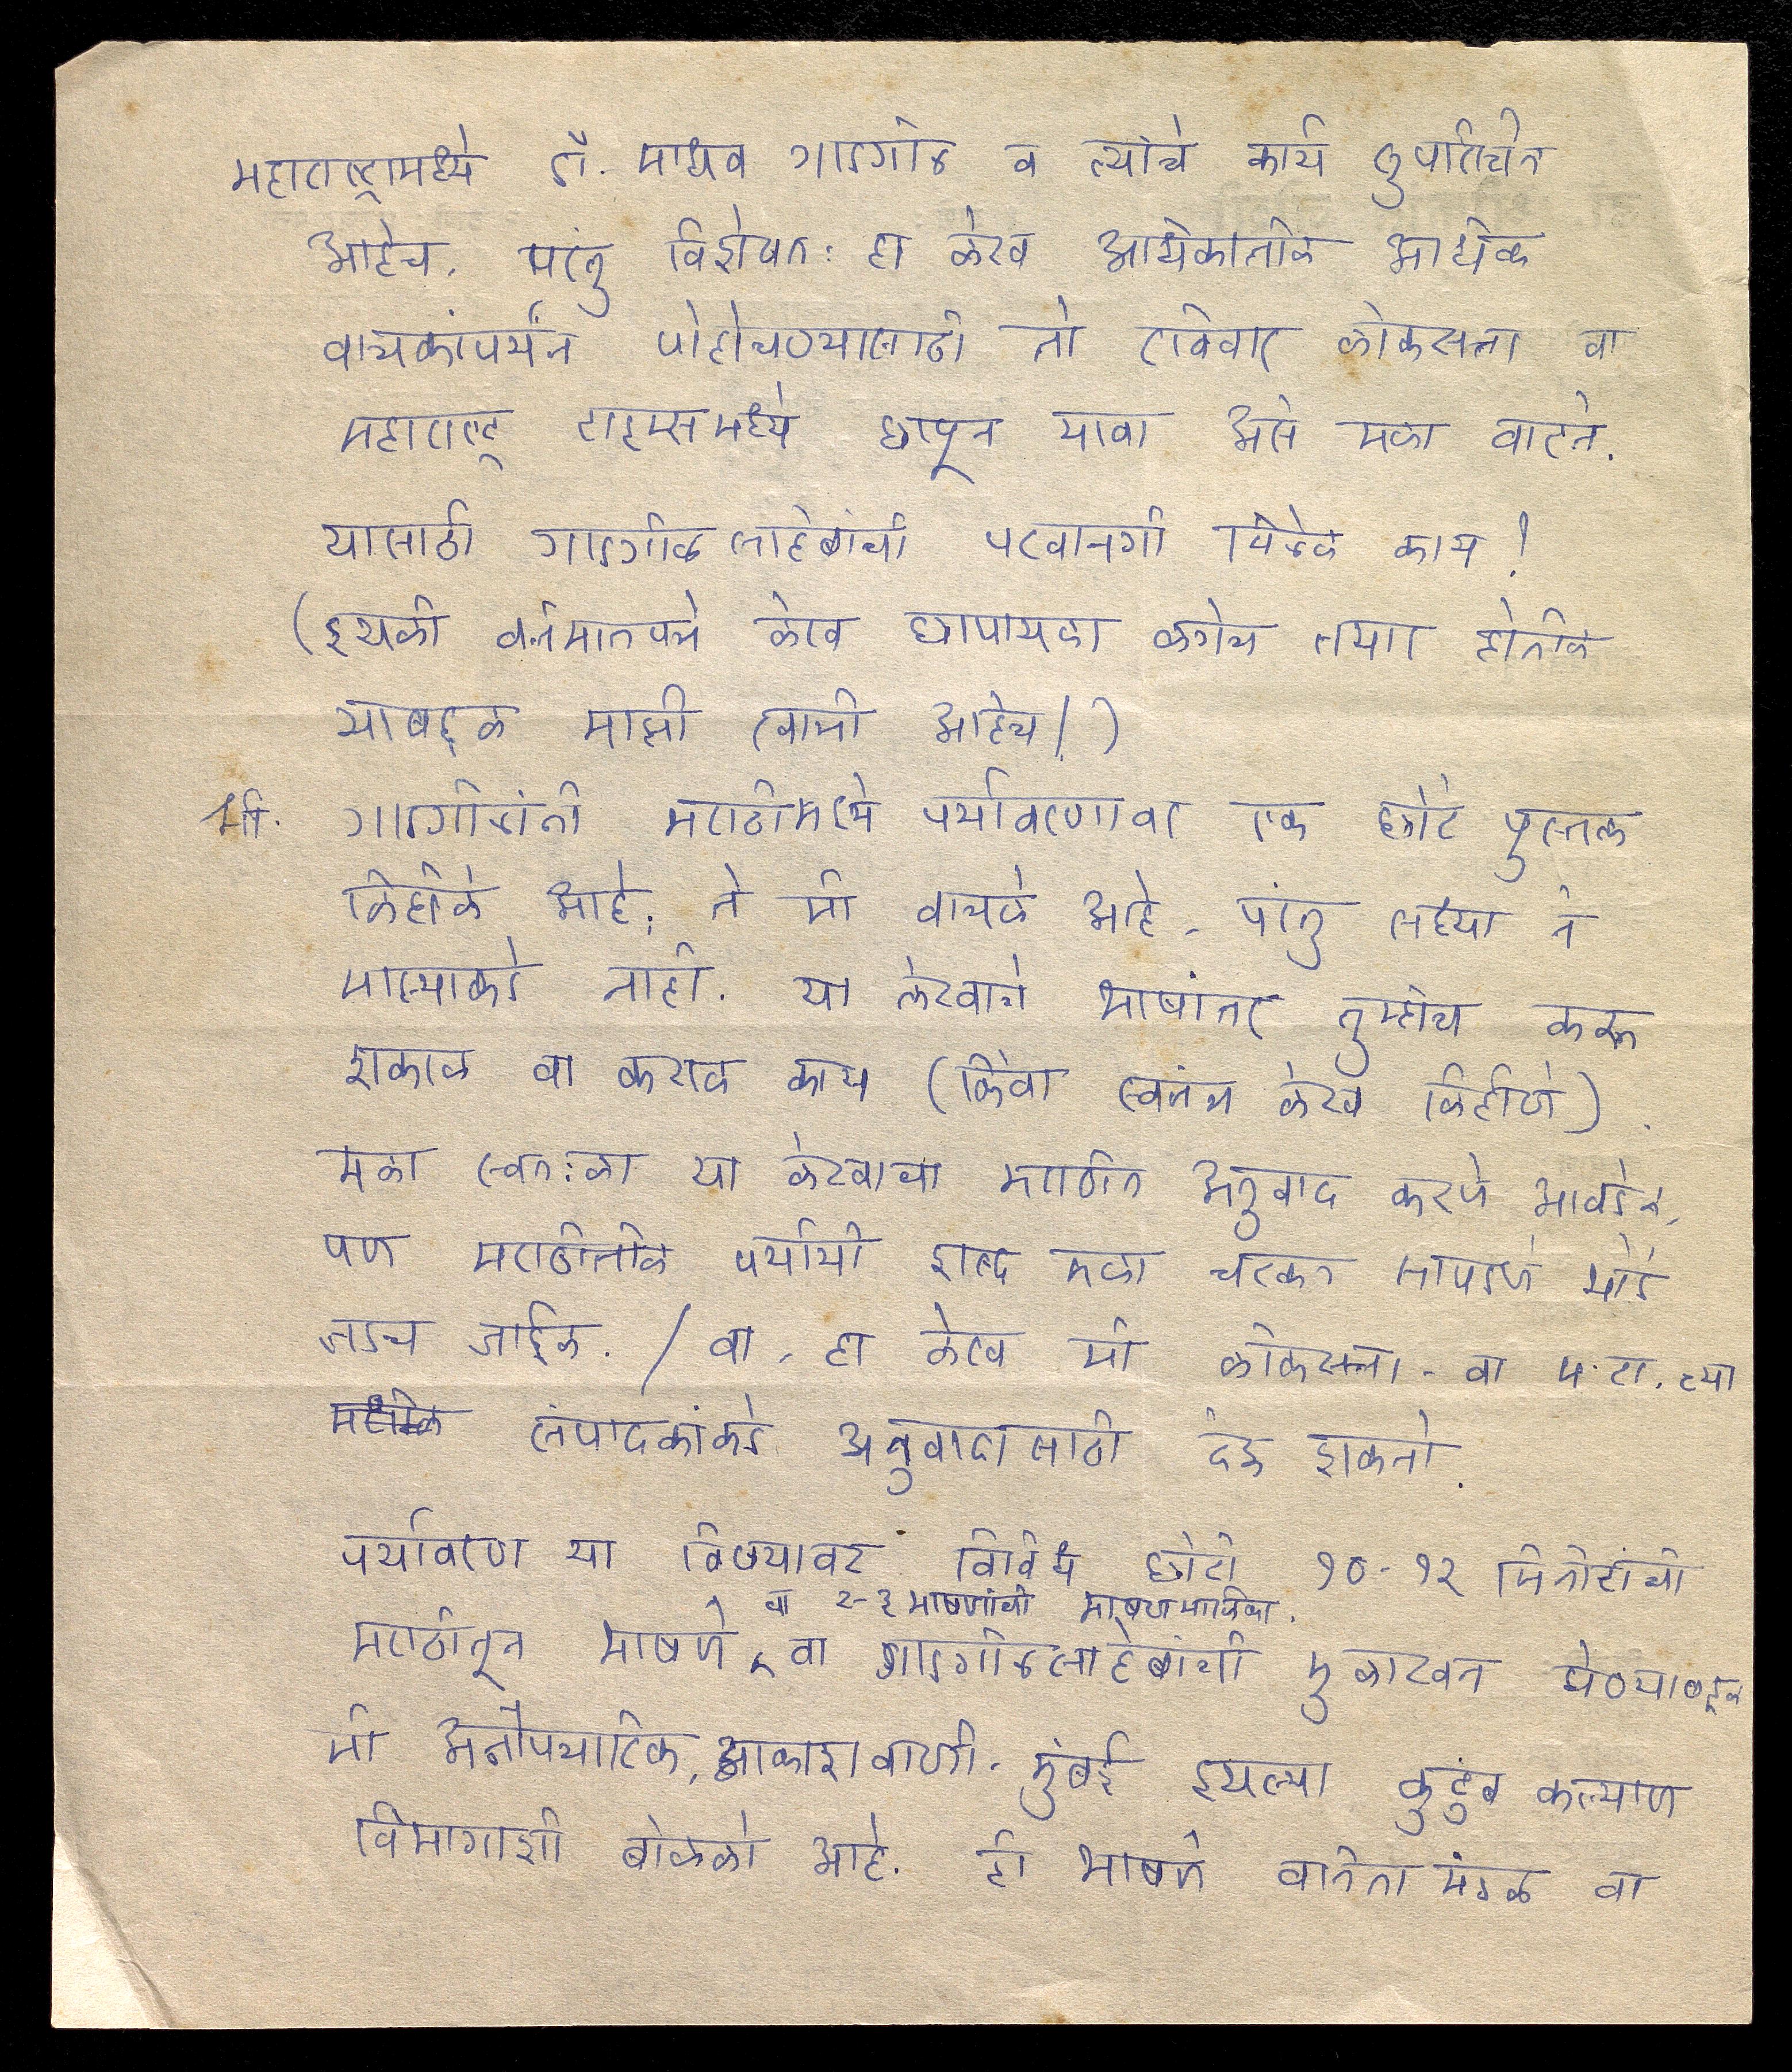 महाराष्ट्रामध्ये डॉ. माधव गाडगीळ व त्यांचे कार्य सुपरिचित
आहेच. परंतु विशेषत: हा लेख अधिकातील अधिक
वाचकांपर्यंत पोहोचण्यासाठी तो रविवार लोकसत्ता वा
महाराष्ट्र टाइम्समध्ये छापून यावा असे मला वाटते.
यासाठी गाडगीळसाहेबांची परवानगी मिळेल काय!
(इथली वर्तमानपत्रे लेख छापायला लगेच तयार होतील
याबद्दल माझी खात्री आहेच!)
श्री. गाडगीळांनी मराठीमध्ये पर्यावरणावर एक छोटे पुस्तक
लिहीले आहे, ते मी वाचले आहे, परंतु सध्या ते
माझ्याकडे नाही. या लेखाचे भाषांतर तुम्हीच करू
शकाल वा कराल काय (किंवा स्वतंत्र लेख लिहीणे).
मला स्वत:ला या लेखाचा मराठीत अनुवाद करणे आवडेल,
पण मराठीतील पर्यायी शब्द मला चटकन सापडणे थोडे
जडच जाईल. / वा, हा लेख मी लोकसत्ता - वा म.टा. च्या
संपादकांकडे अनुवादासाठी देऊ शकतो.
पर्यावरण या विषयावर विविध छोटी १०-१२ मिनीटांची
वा २-३ भाषणांची भाषणमालिका.
मराठीतून भाषणे, वा गाडगीळसाहेबांची मुलाखत घेण्याबद्दल
मी अनौपचारिक, आकाशवाणी - मुंबई इथल्या कुटुंब कल्याण
विभागाशी बोललो आहे. ही भाषणे वनिता मंडळ वा